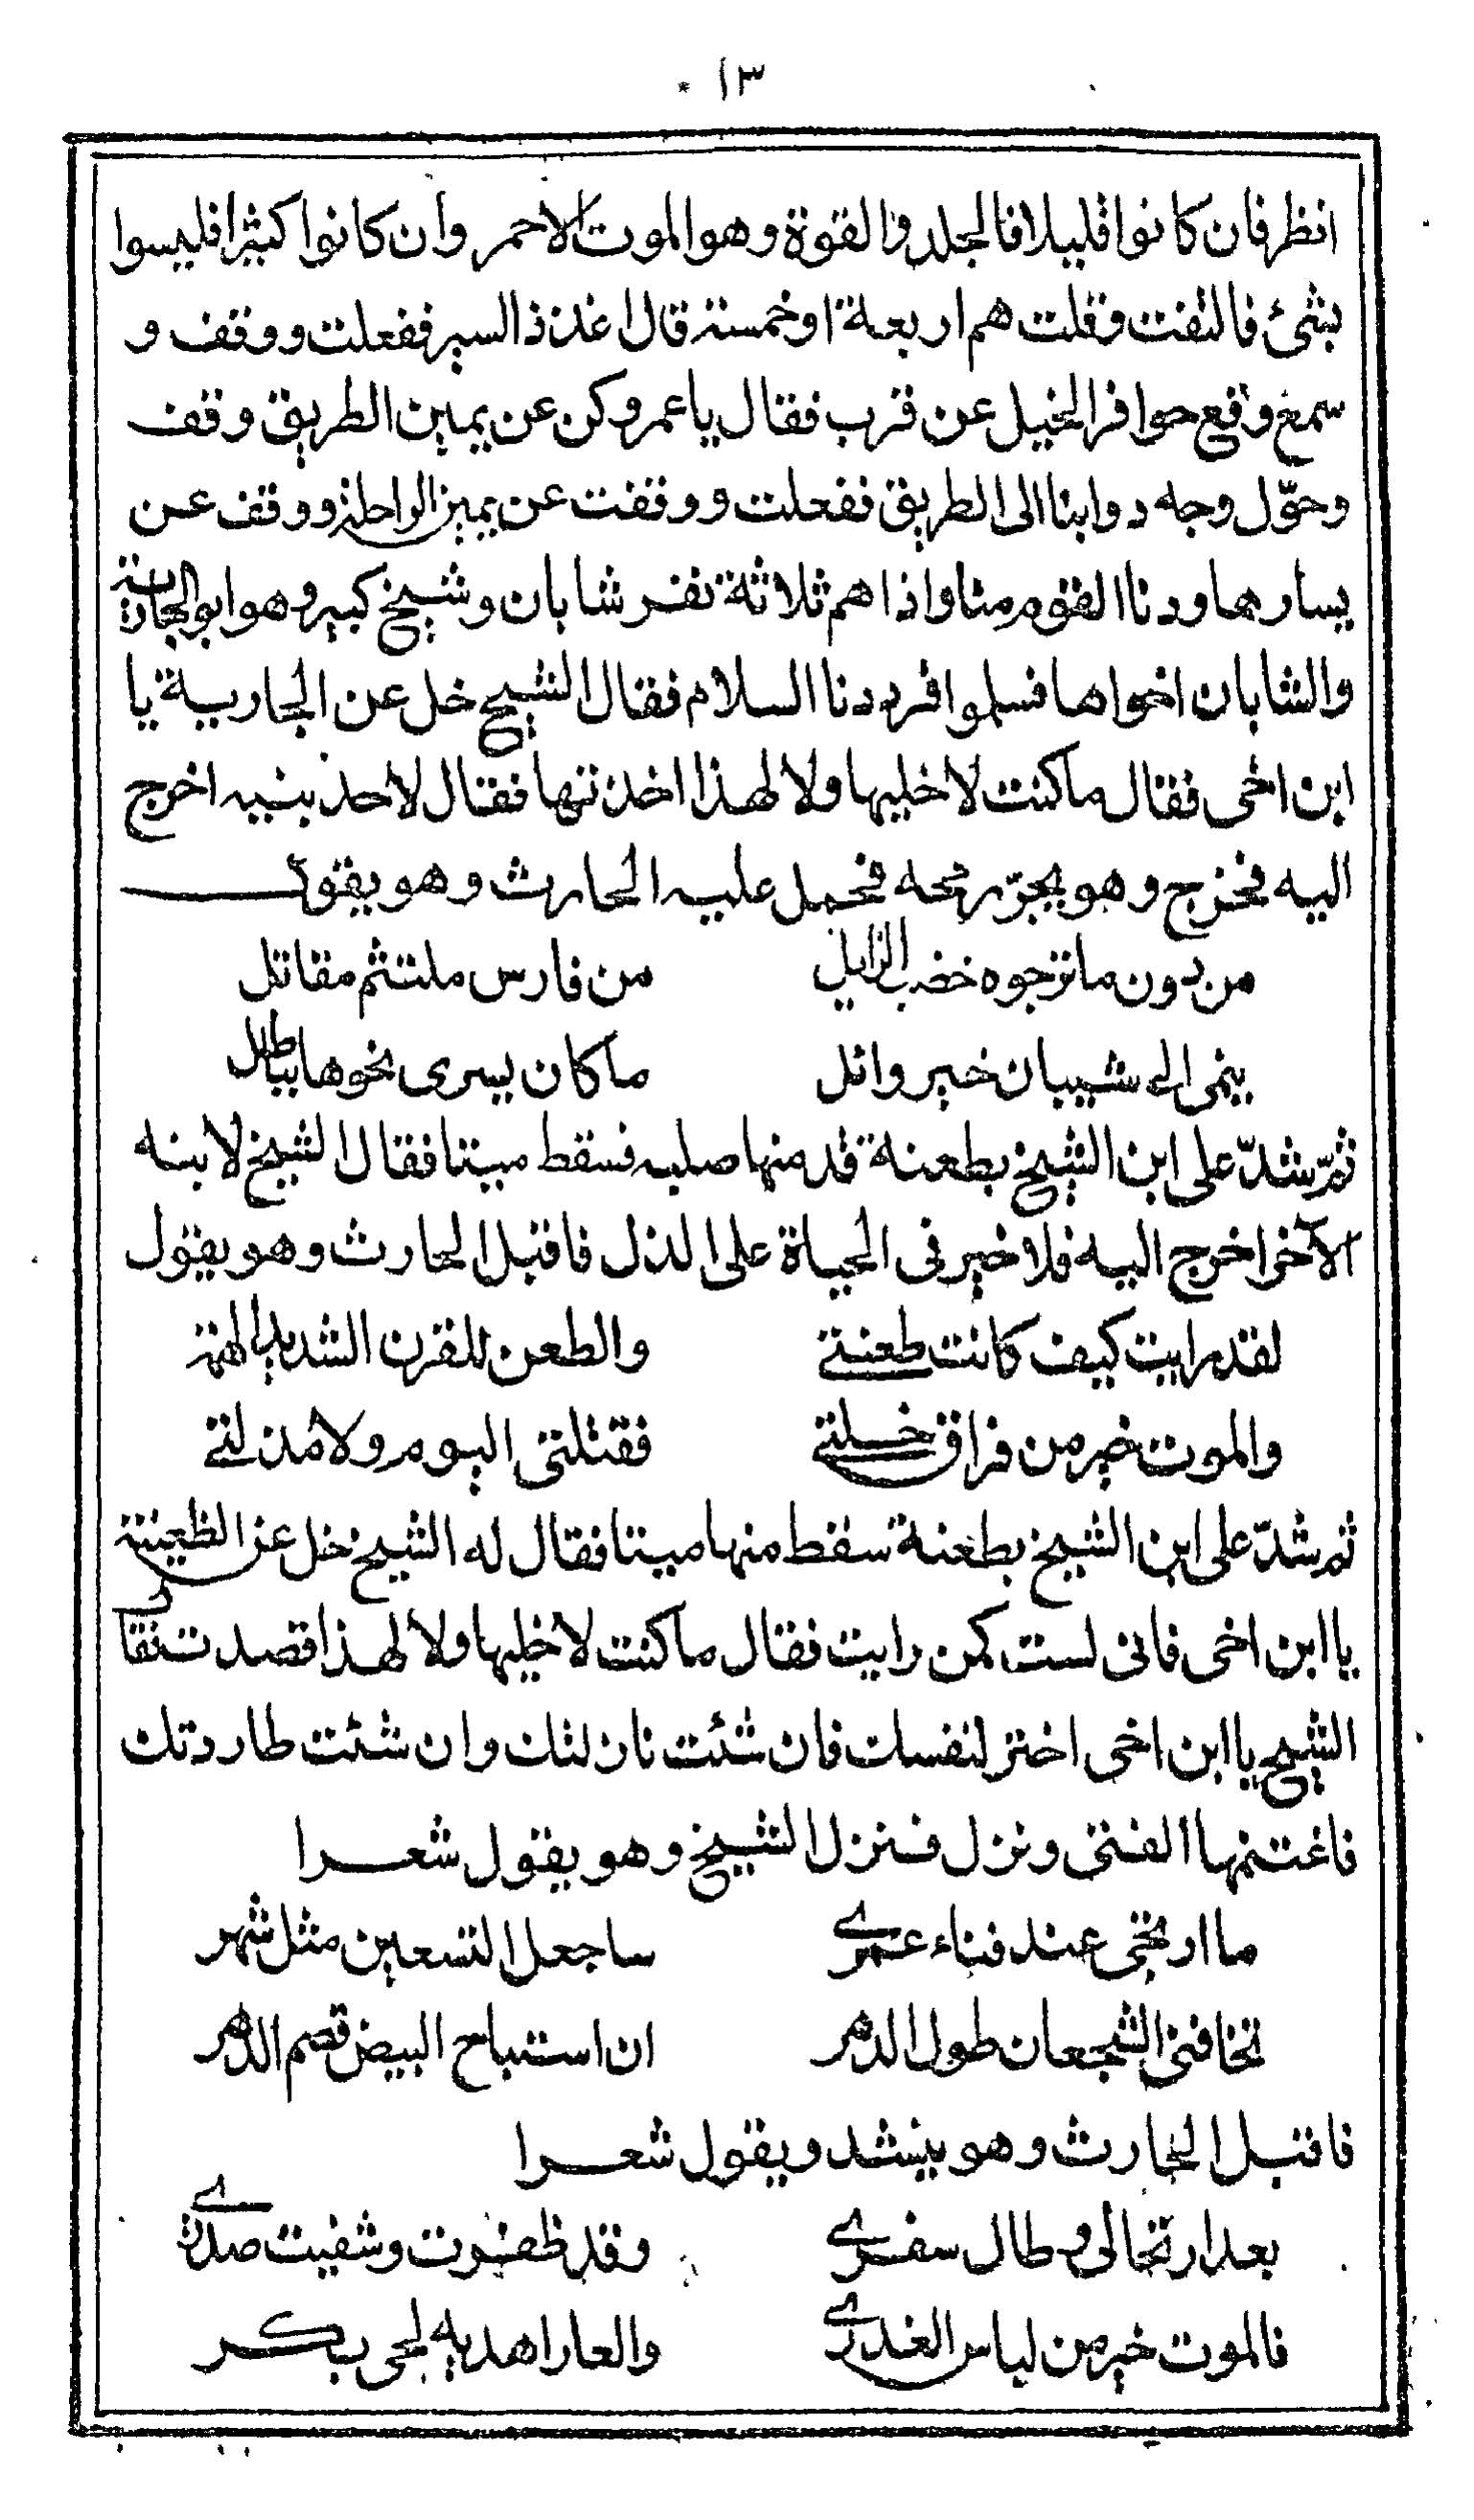 ١٣
انظر فان كانوا قليلا فالجلد والقوة وهو الموت الاحمر وان كانوا كثيرا فليسوا
بشئ فالتفت وقلت هم اربعة او خمسة قال اغذذ السير ففعلت ووقف و
سمع وقع حوافر الخيل عن قرب فقال يا عمرو كن عن يمين الطريق وقف
وحوّل وجه دوابنا الى الطريق ففعلت ووقفت عن يمين الراحلة ووقف عن
يسارها ودنا القوم منا واذا هم ثلاثة نفر شابان وشيخ كبير وهو ابو الجارية
والشابان اخواها فسلموا فرددنا السلام فقال الشيخ خل عن الجارية يا
ابن اخى فقال ما كنت لاخليها ولا لهذا اخذتها فقال لاحد بنيه اخرج
اليه فخرج وهو يجرّ رمحه فحمل عليه الحارث وهو يقول
من دون ما ترجوه خضب الذابل
من فارس ملتثم مقاتل
ينمى الى شيبان خير وائل
ما كان يسرى نحوها بباطل
ثمّ شدّ على ابن الشيخ بطعنة قد منها صلبه فسقط ميتا فقال الشيخ لابنه
الآخر اخرج اليه فلا خير فى الحياة على الذل فاقبل الحارث وهو يقول
لقد رايت كيف كانت طعنتى
والطعن للقرن الشديد الهمة
والموت خير من فراق خلتى
فقتلتى اليوم ولا مذلتى
ثم شدّ على ابن الشيخ بطعنة سقط منها ميتا فقال له الشيخ خل عن الظعينة
يا ابن اخى فانى لست كمن رايت فقال ما كنت لاخليها ولا لهذا قصدت فقال
الشيخ يا ابن اخى اختر لنفسك فان شئت نازلتك وان شئت طاردتك
فاغتنمها الفتى ونزل فنزل الشيخ وهو يقول شعرا
ما ارتجى عند فناء عمرى
ساجعل التسعين مثل شهر
تخافنى الشجعان طول الدهر
ان استباح البيض قصم الدهر
فاقبل الحارث وهو ينشد ويقول شعرا
بعد ارتحالى وطال سفرى
وقد ظفرت وشفيت صدرى
فالموت خير من لباس الغدر
والعار اهديه لحى بكر